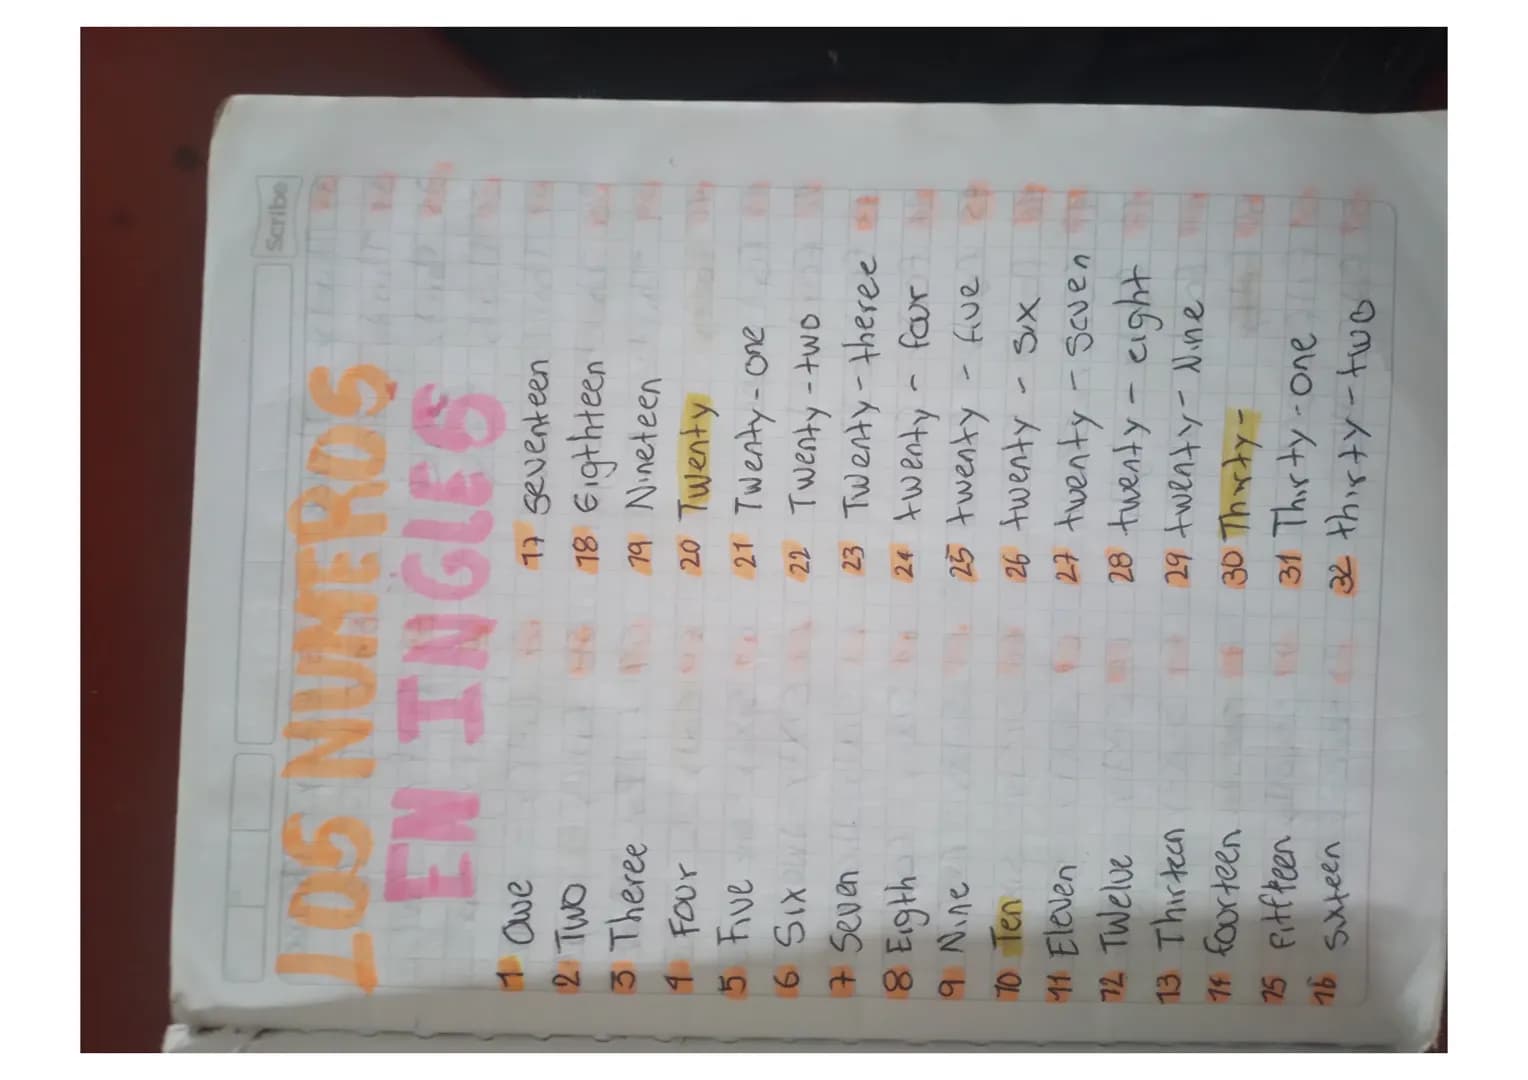 Scribe
LOS NUMEROS
EN INGLES
1 Owe
2 Two
3 Theree
4 Four
5 Five
6 Six
7 Seven
8 Eigth
9 Nine
10 Ten
11 Eleven
12 Twelve
13 Thirteen
14 foorteen
15 Fifteen
16 Sixteen
17 Seventeen
18 Eighteen
19 Nineteen
20 Twenty
21 Twenty-one
22 Twenty-two
23 Twenty-theree
24 twenty - four
25 twenty - five
26 twenty - six
27 twenty - seven
28 twenty - eight
29 twenty - Nine
30 Thirty-
31 Thirty-one
32 thirty-two